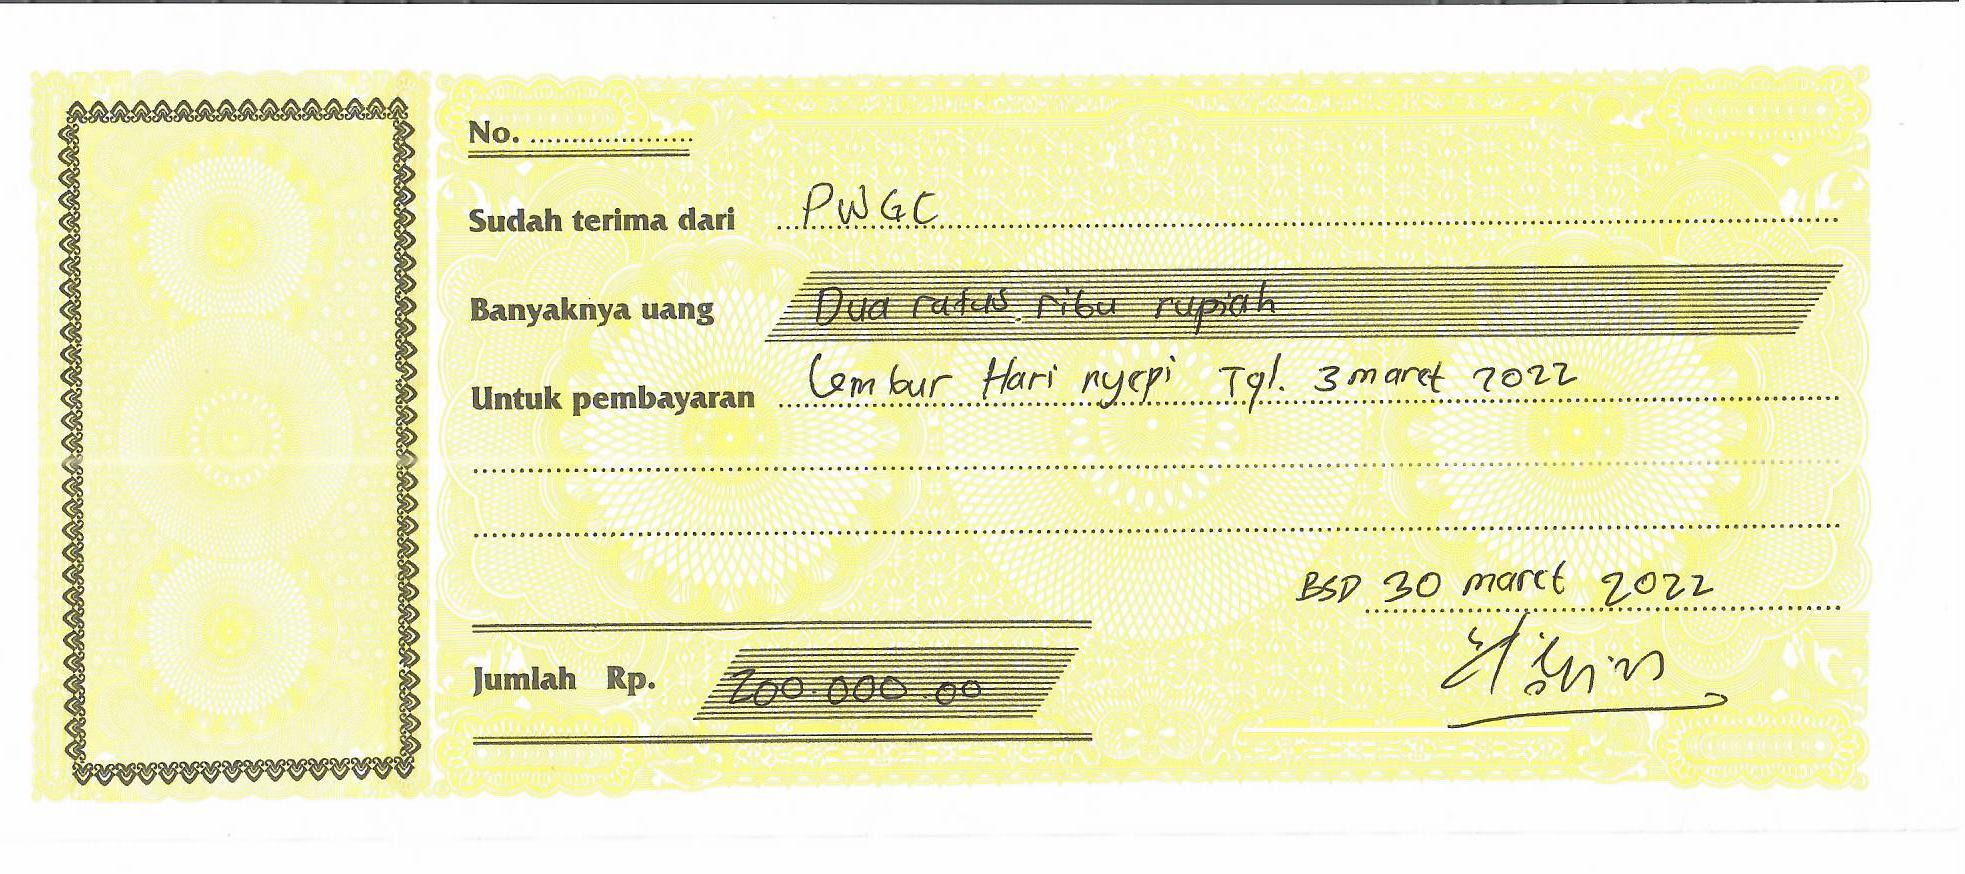 No. ....................
Sudah terima dari PWGC
Banyaknya uang Dua ratus ribu rupiah
Untuk pembayaran Lembur Hari nyepi Tgl. 3 maret 2022
BSD 30 maret 2022
Jumlah Rp. 200.000.00